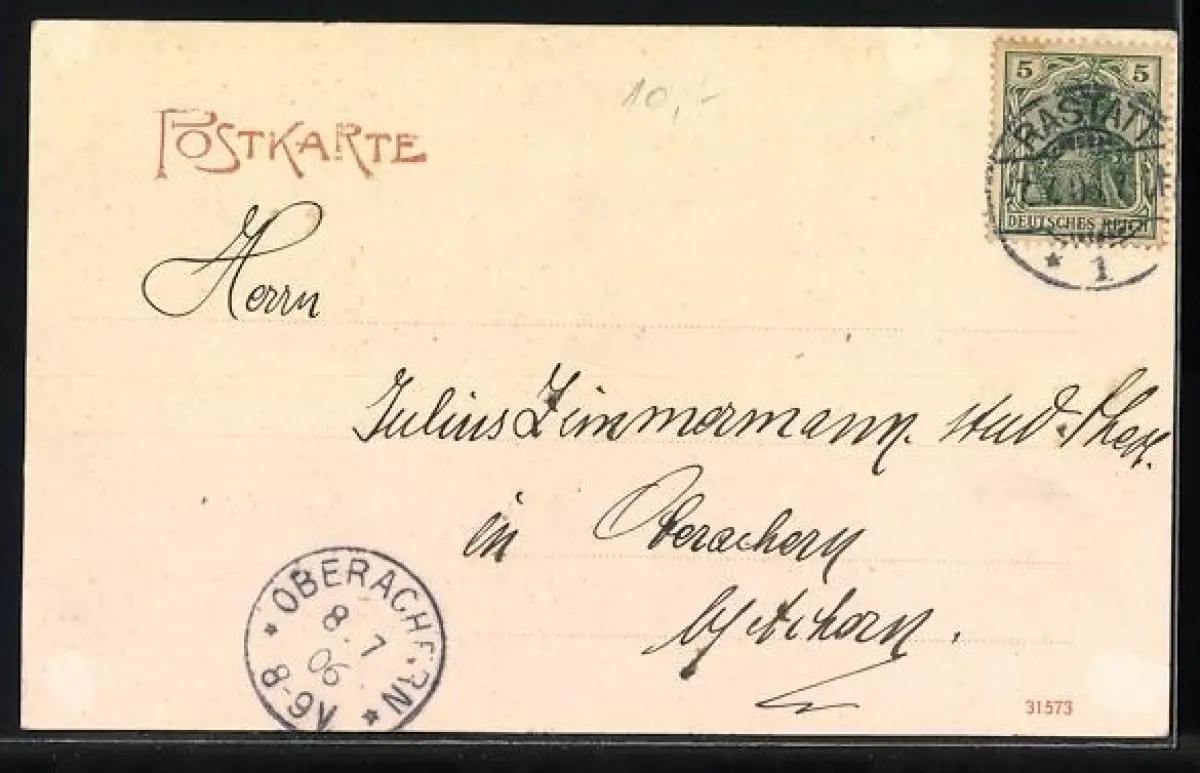 10,-
POSTKARTE
5 5
RASTATT
DEUTSCHES REICH
* 1
Herrn
Julius Zimmermann. stud. Theol.
in Oberachern
by Achern.
* OBERACHERN *
8. 7
06
6-8
31573